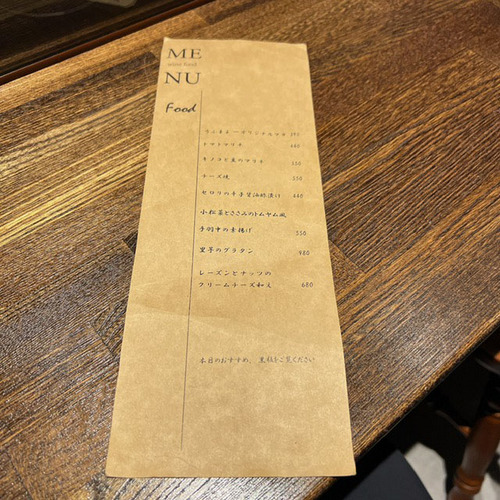 ME
NU
Food
トマトマリネ 440
キノコと豆のマリネ 550
チーズ味 550
セロリの辛子醤油漬け 440
小松菜とささみのトムヤム風
手羽中の素揚げ 550
里芋のグラタン 980
レーズンとナッツの
クリームチーズ和え 680
本日のおすすめ、黒板をご覧ください